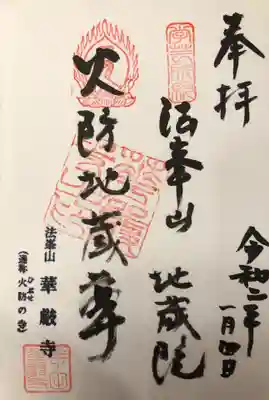 奉拝
令和二年
一月四日
法峯山 地蔵院
火防地蔵尊
法峯山 華厳寺
ひぶせ
(通称 火防の寺)